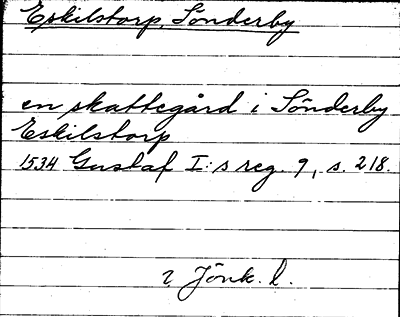 Eskilstorp, Sönderby
en skattegård i Sönderby
Eskilstorp
1534 Gustaf I:s reg. 9, s. 218.
? Jönk. l.